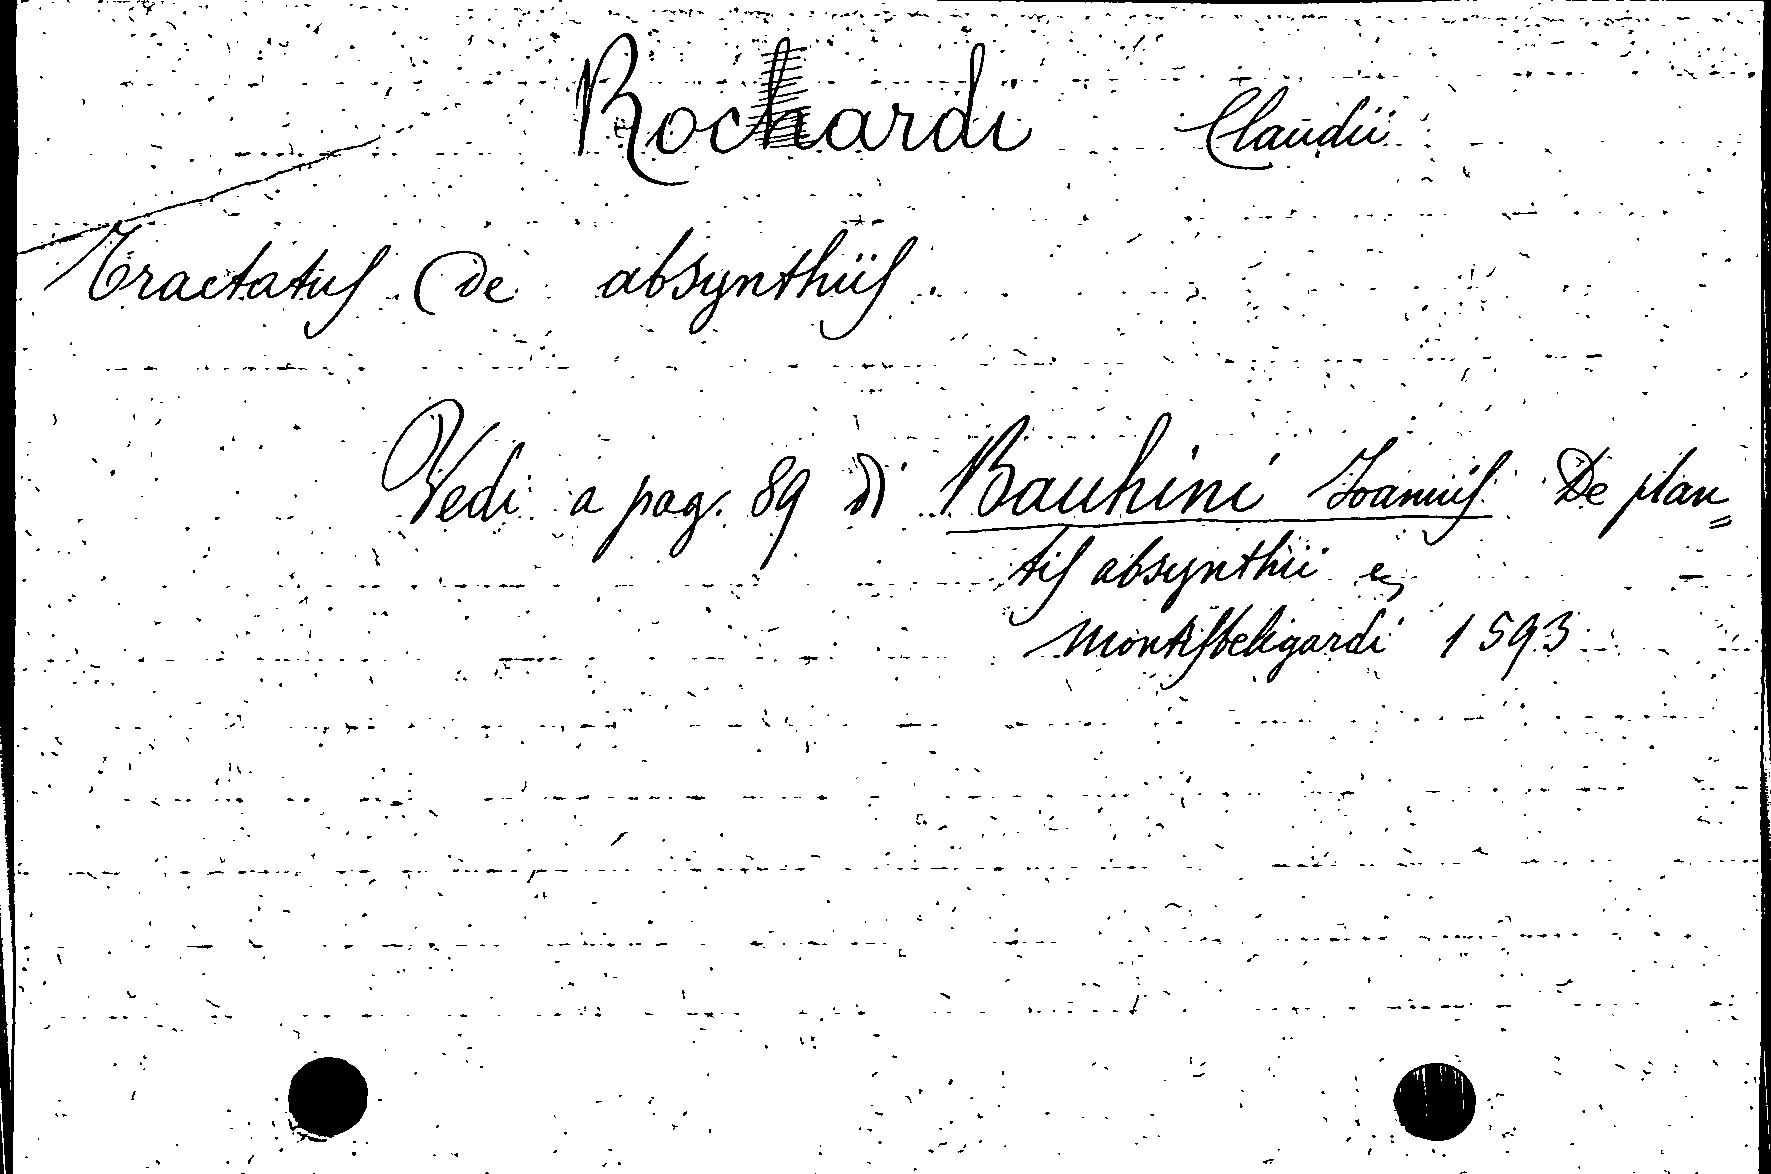 Rocardi Claudii
Tractatus De absynthiis.
Vedi a pag. 89 di Bauhini Ioannis De plan=
tis absynthii ec
Montisbeligardi 1593